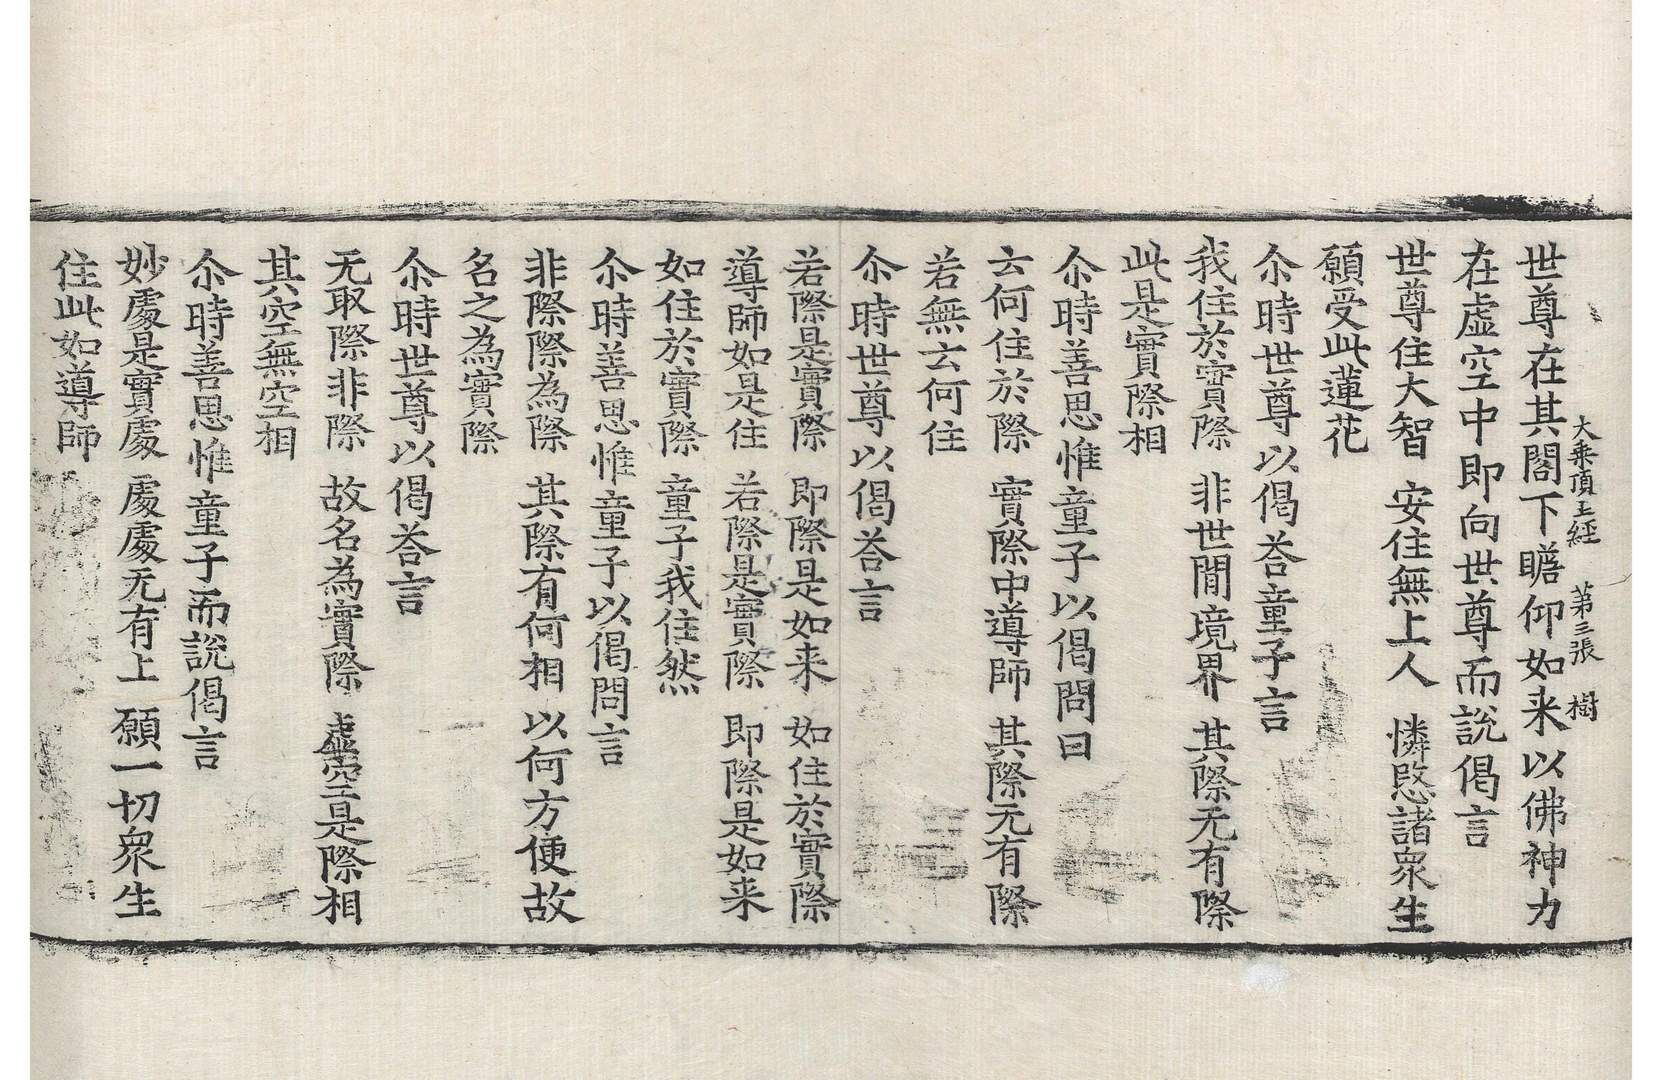 大乘頂王經　第三張　樹
世尊在其閣下瞻仰如来以佛神力
在虚空中即向世尊而說偈言
世尊住大智　安住無上人　憐愍諸衆生
願受此蓮花
尒時世尊以偈荅童子言
我住於實際　非世間境界　其際无有際
此是實際相
尒時善思惟童子以偈問曰
云何住於際　實際中導師　其際元有際
若無云何住
尒時世尊以偈荅言
若際是實際　即際是如来　如住於實際
導師如是住　若際是實際　即際是如来
如住於實際　童子我住然
尒時善思惟童子以偈問言
非際際為際　其際有何相　以何方便故
名之為實際
尒時世尊以偈荅言
无取際非際　故名為實際　虚空是際相
其空無空相
尒時善思惟童子而說偈言
妙處是實處　處處无有上　願一切衆生
住此如導師